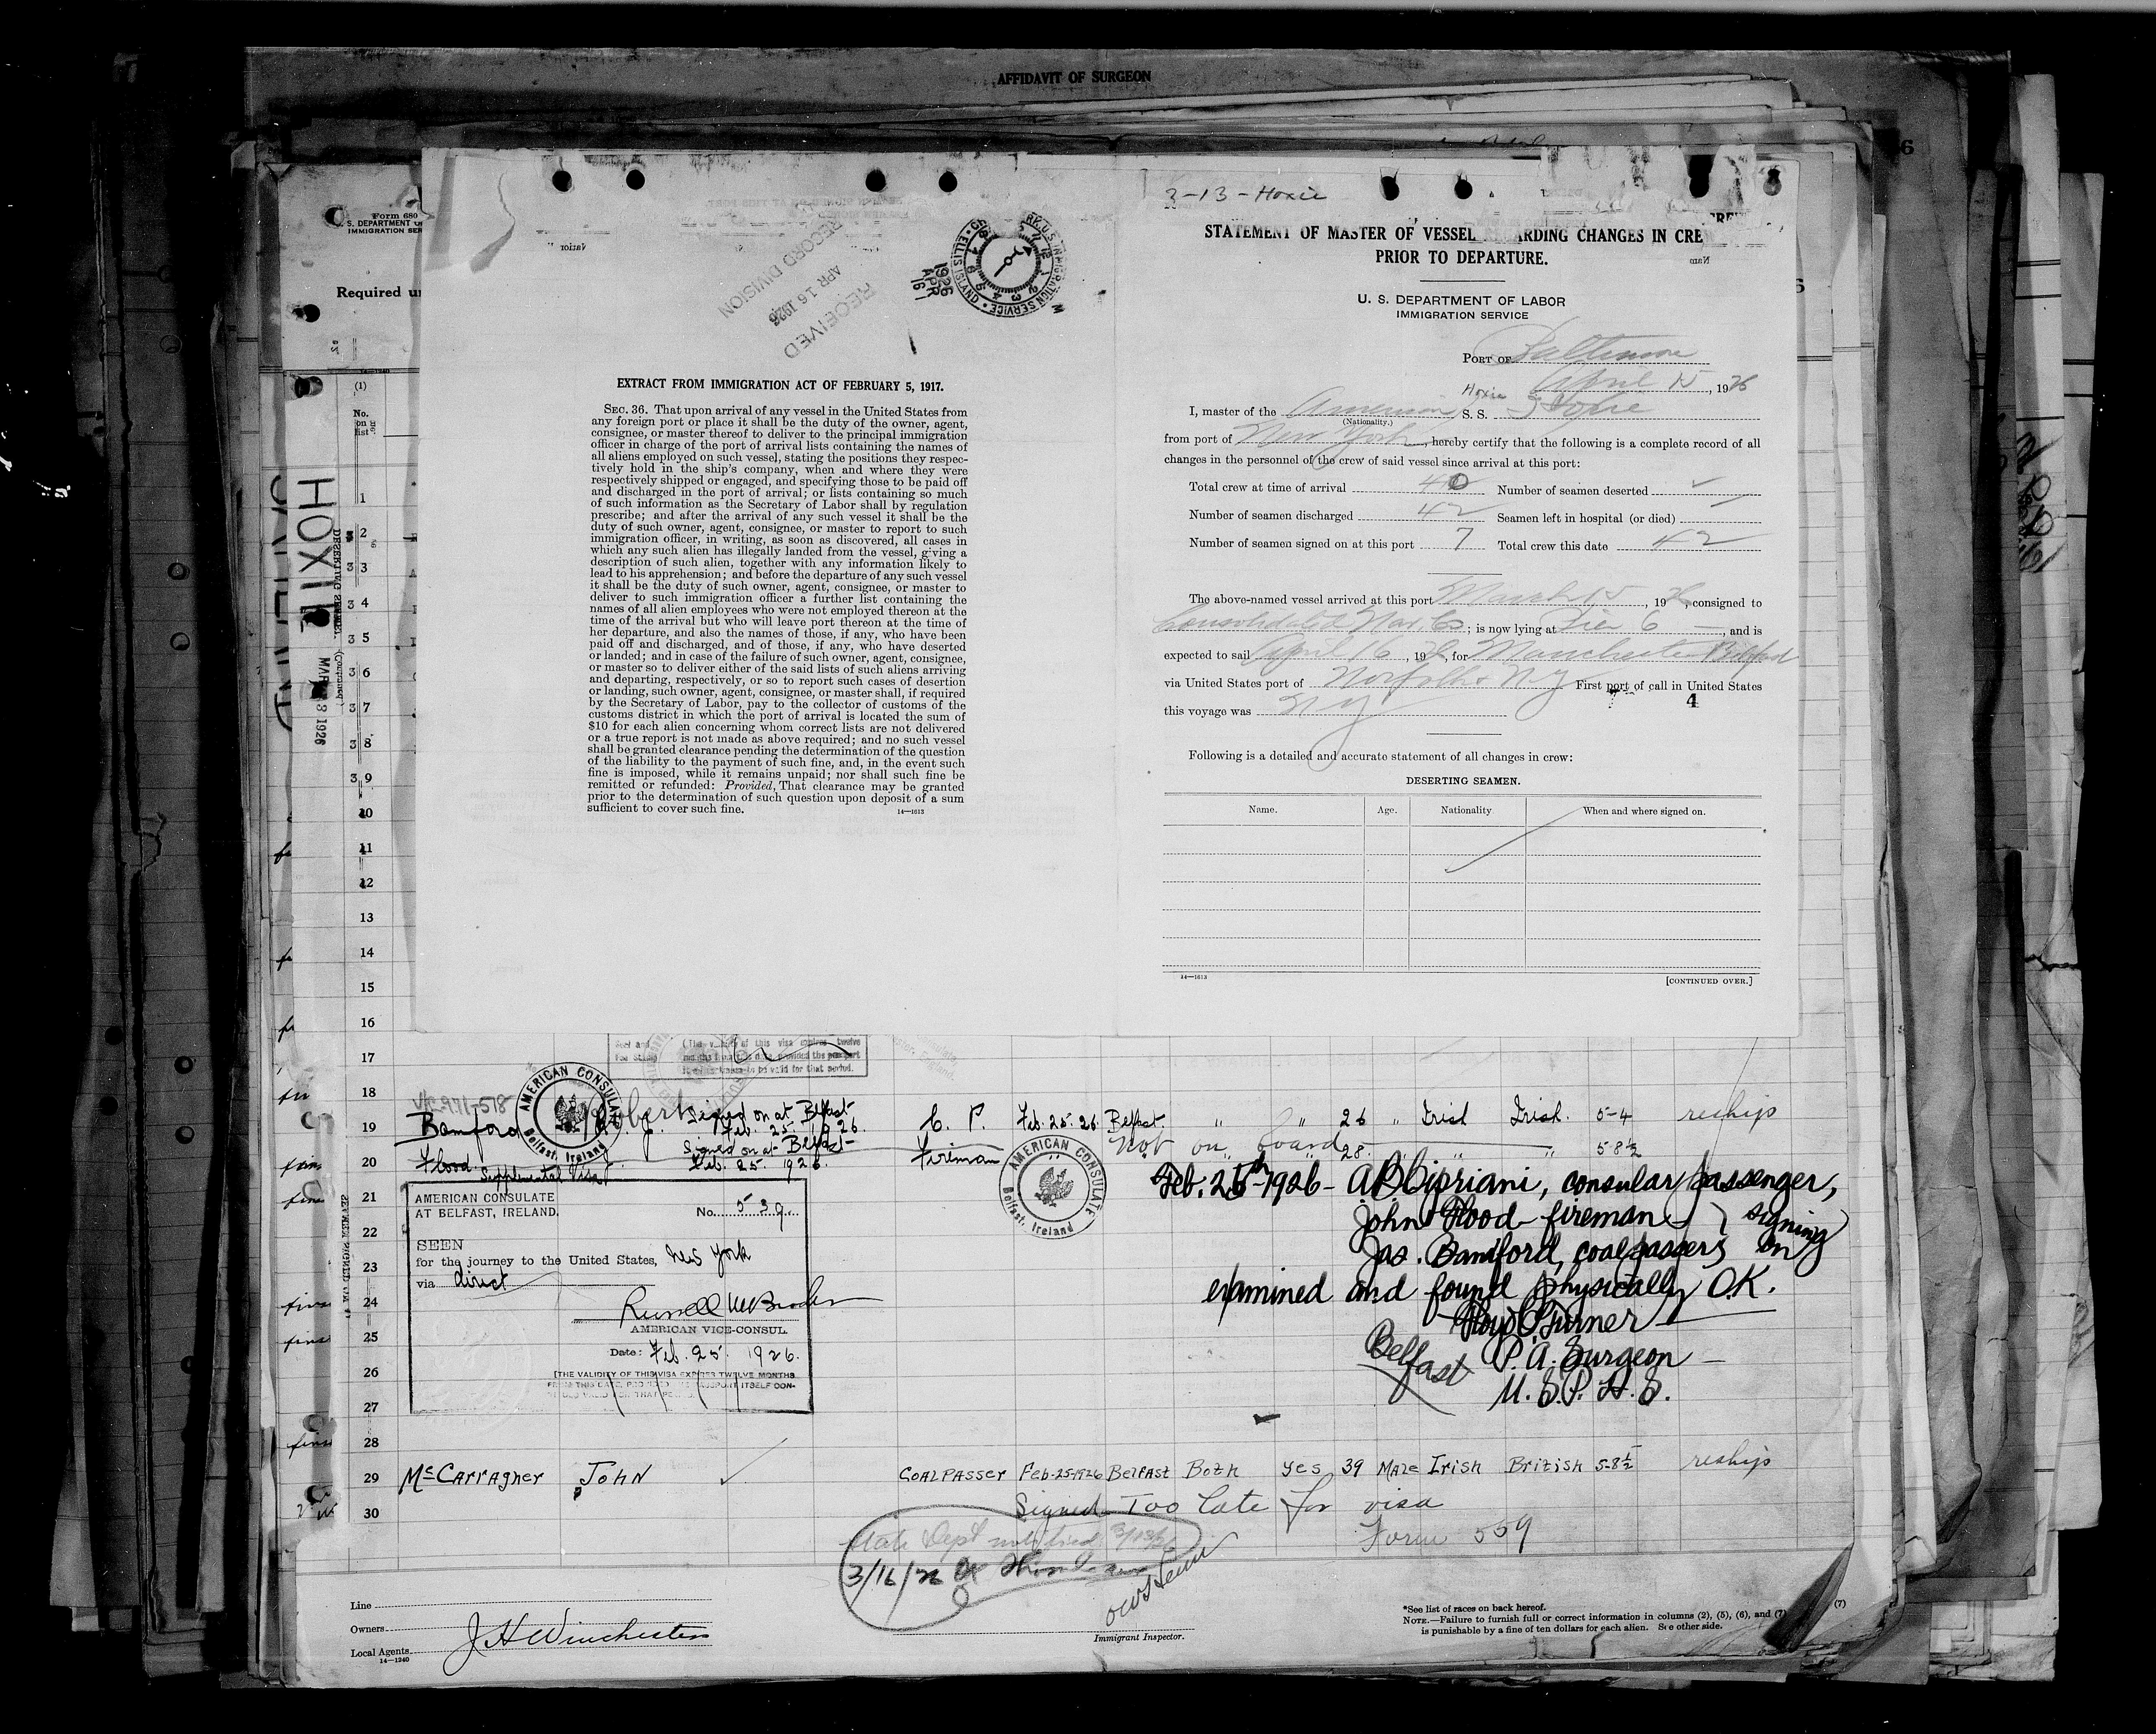 AFFIDAVIT OF SURGEON
Form 680
S. DEPARTMENT O
IMMIGRATION SER
Required u
(1)
No.
on
list
HOXIE
MAR 13 1926
RECEIVED
APR 16 1926
RECORD DIVISION
1926
APR
16
ELLIS ISLAND
U.S. IMMIGRATION SERVICE
EXTRACT FROM IMMIGRATION ACT OF FEBRUARY 5, 1917.
SEC. 36. That upon arrival of any vessel in the United States from
any foreign port or place it shall be the duty of the owner, agent,
consignee, or master thereof to deliver to the principal immigration
officer in charge of the port of arrival lists containing the names of
all aliens employed on such vessel, stating the positions they respec-
tively hold in the ship's company, when and where they were
respectively shipped or engaged, and specifying those to be paid off
and discharged in the port of arrival; or lists containing so much
of such information as the Secretary of Labor shall by regulation
prescribe; and after the arrival of any such vessel it shall be the
duty of such owner, agent, consignee, or master to report to such
immigration officer, in writing, as soon as discovered, all cases in
which any such alien has illegally landed from the vessel, giving a
description of such alien, together with any information likely to
lead to his apprehension; and before the departure of any such vessel
it shall be the duty of such owner, agent, consignee, or master to
deliver to such immigration officer a further list containing the
names of all alien employees who were not employed thereon at the
time of the arrival but who will leave port thereon at the time of
her departure, and also the names of those, if any, who have been
paid off and discharged, and of those, if any, who have deserted
or landed; and in case of the failure of such owner, agent, consignee,
or master so to deliver either of the said lists of such aliens arriving
and departing, respectively, or so to report such cases of desertion
or landing, such owner, agent, consignee, or master shall, if required
by the Secretary of Labor, pay to the collector of customs of the
customs district in which the port of arrival is located the sum of
$10 for each alien concerning whom correct lists are not delivered
or a true report is not made as above required; and no such vessel
shall be granted clearance pending the determination of the question
of the liability to the payment of such fine, and, in the event such
fine is imposed, while it remains unpaid; nor shall such fine be
remitted or refunded: Provided, That clearance may be granted
prior to the determination of such question upon deposit of a sum
sufficient to cover such fine.
14—1613
3-13-Hoxie
STATEMENT OF MASTER OF VESSEL ARDING CHANGES IN CRE
PRIOR TO DEPARTURE.
U. S. DEPARTMENT OF LABOR
IMMIGRATION SERVICE
PORT OF Baltimore
April 15, 1926
Hoxie
I, master of the American S. S. Hoxie
(Nationality.)
from port of New York, hereby certify that the following is a complete record of all
changes in the personnel of the crew of said vessel since arrival at this port:
Total crew at time of arrival 40 Number of seamen deserted
Number of seamen discharged 42 Seamen left in hospital (or died)
Number of seamen signed on at this port 7 Total crew this date 42
The above-named vessel arrived at this port March 15, 1926, consigned to
Consolidated Nav. Co; is now lying at Pier 6, and is
expected to sail April 16, 1926, for Manchester
via United States port of Norfolk & N.Y First port of call in United States
this voyage was N Y 4
Following is a detailed and accurate statement of all changes in crew:
DESERTING SEAMEN.
Name. Age. Nationality When and where signed on.
14—1613
[CONTINUED OVER.]
1
2
3
4
5
6
7
8
9
10
11
12
13
14
15
16
17
18
19 Bamford Robert Signed on at Belfast Feb. 25 1926. C. P. Feb. 25. 26. Belfast. " " 26 " Irish Irish. 5-4 reship
20 Flood Signed on at Belfast Feb. 25. 1926. Fireman Not on board 28 " " 5 8½
AMERICAN CONSULATE
Belfast, Ireland.
Supplemental Visa
AMERICAN CONSULATE
Belfast, Ireland
21
22
23
24
25
26
27
28
AMERICAN CONSULATE
AT BELFAST, IRELAND.
No. 539.
SEEN
for the journey to the United States, New York
via direct
AMERICAN VICE-CONSUL.
Date: Feb. 25. 1926.
[THE VALIDITY OF THIS VISA EXPIRES TWELVE MONTHS
Feb. 25th-1926- AB Cipriani, consular passenger,
John Flood-fireman } signing
Jas. Bamford, coalpassers } on
examined and found physically O.K.
Turner
Belfast P. A. Surgeon
U. S. P. H. S.
29 McCarragher John COALPASSER Feb-25-1926 Belfast Both yes 39 Male Irish British 5-8½ reship
30
Signed Too late for visa
Form 559
State Dept notified 3/13/26
3/16/26
Line
Owners
Local Agents J H Winchester
14—1240
Immigrant Inspector.
*See list of races on back hereof.
NOTE.—Failure to furnish full or correct information in columns (2), (5), (6), and (7)
is punishable by a fine of ten dollars for each alien. See other side.
(7)